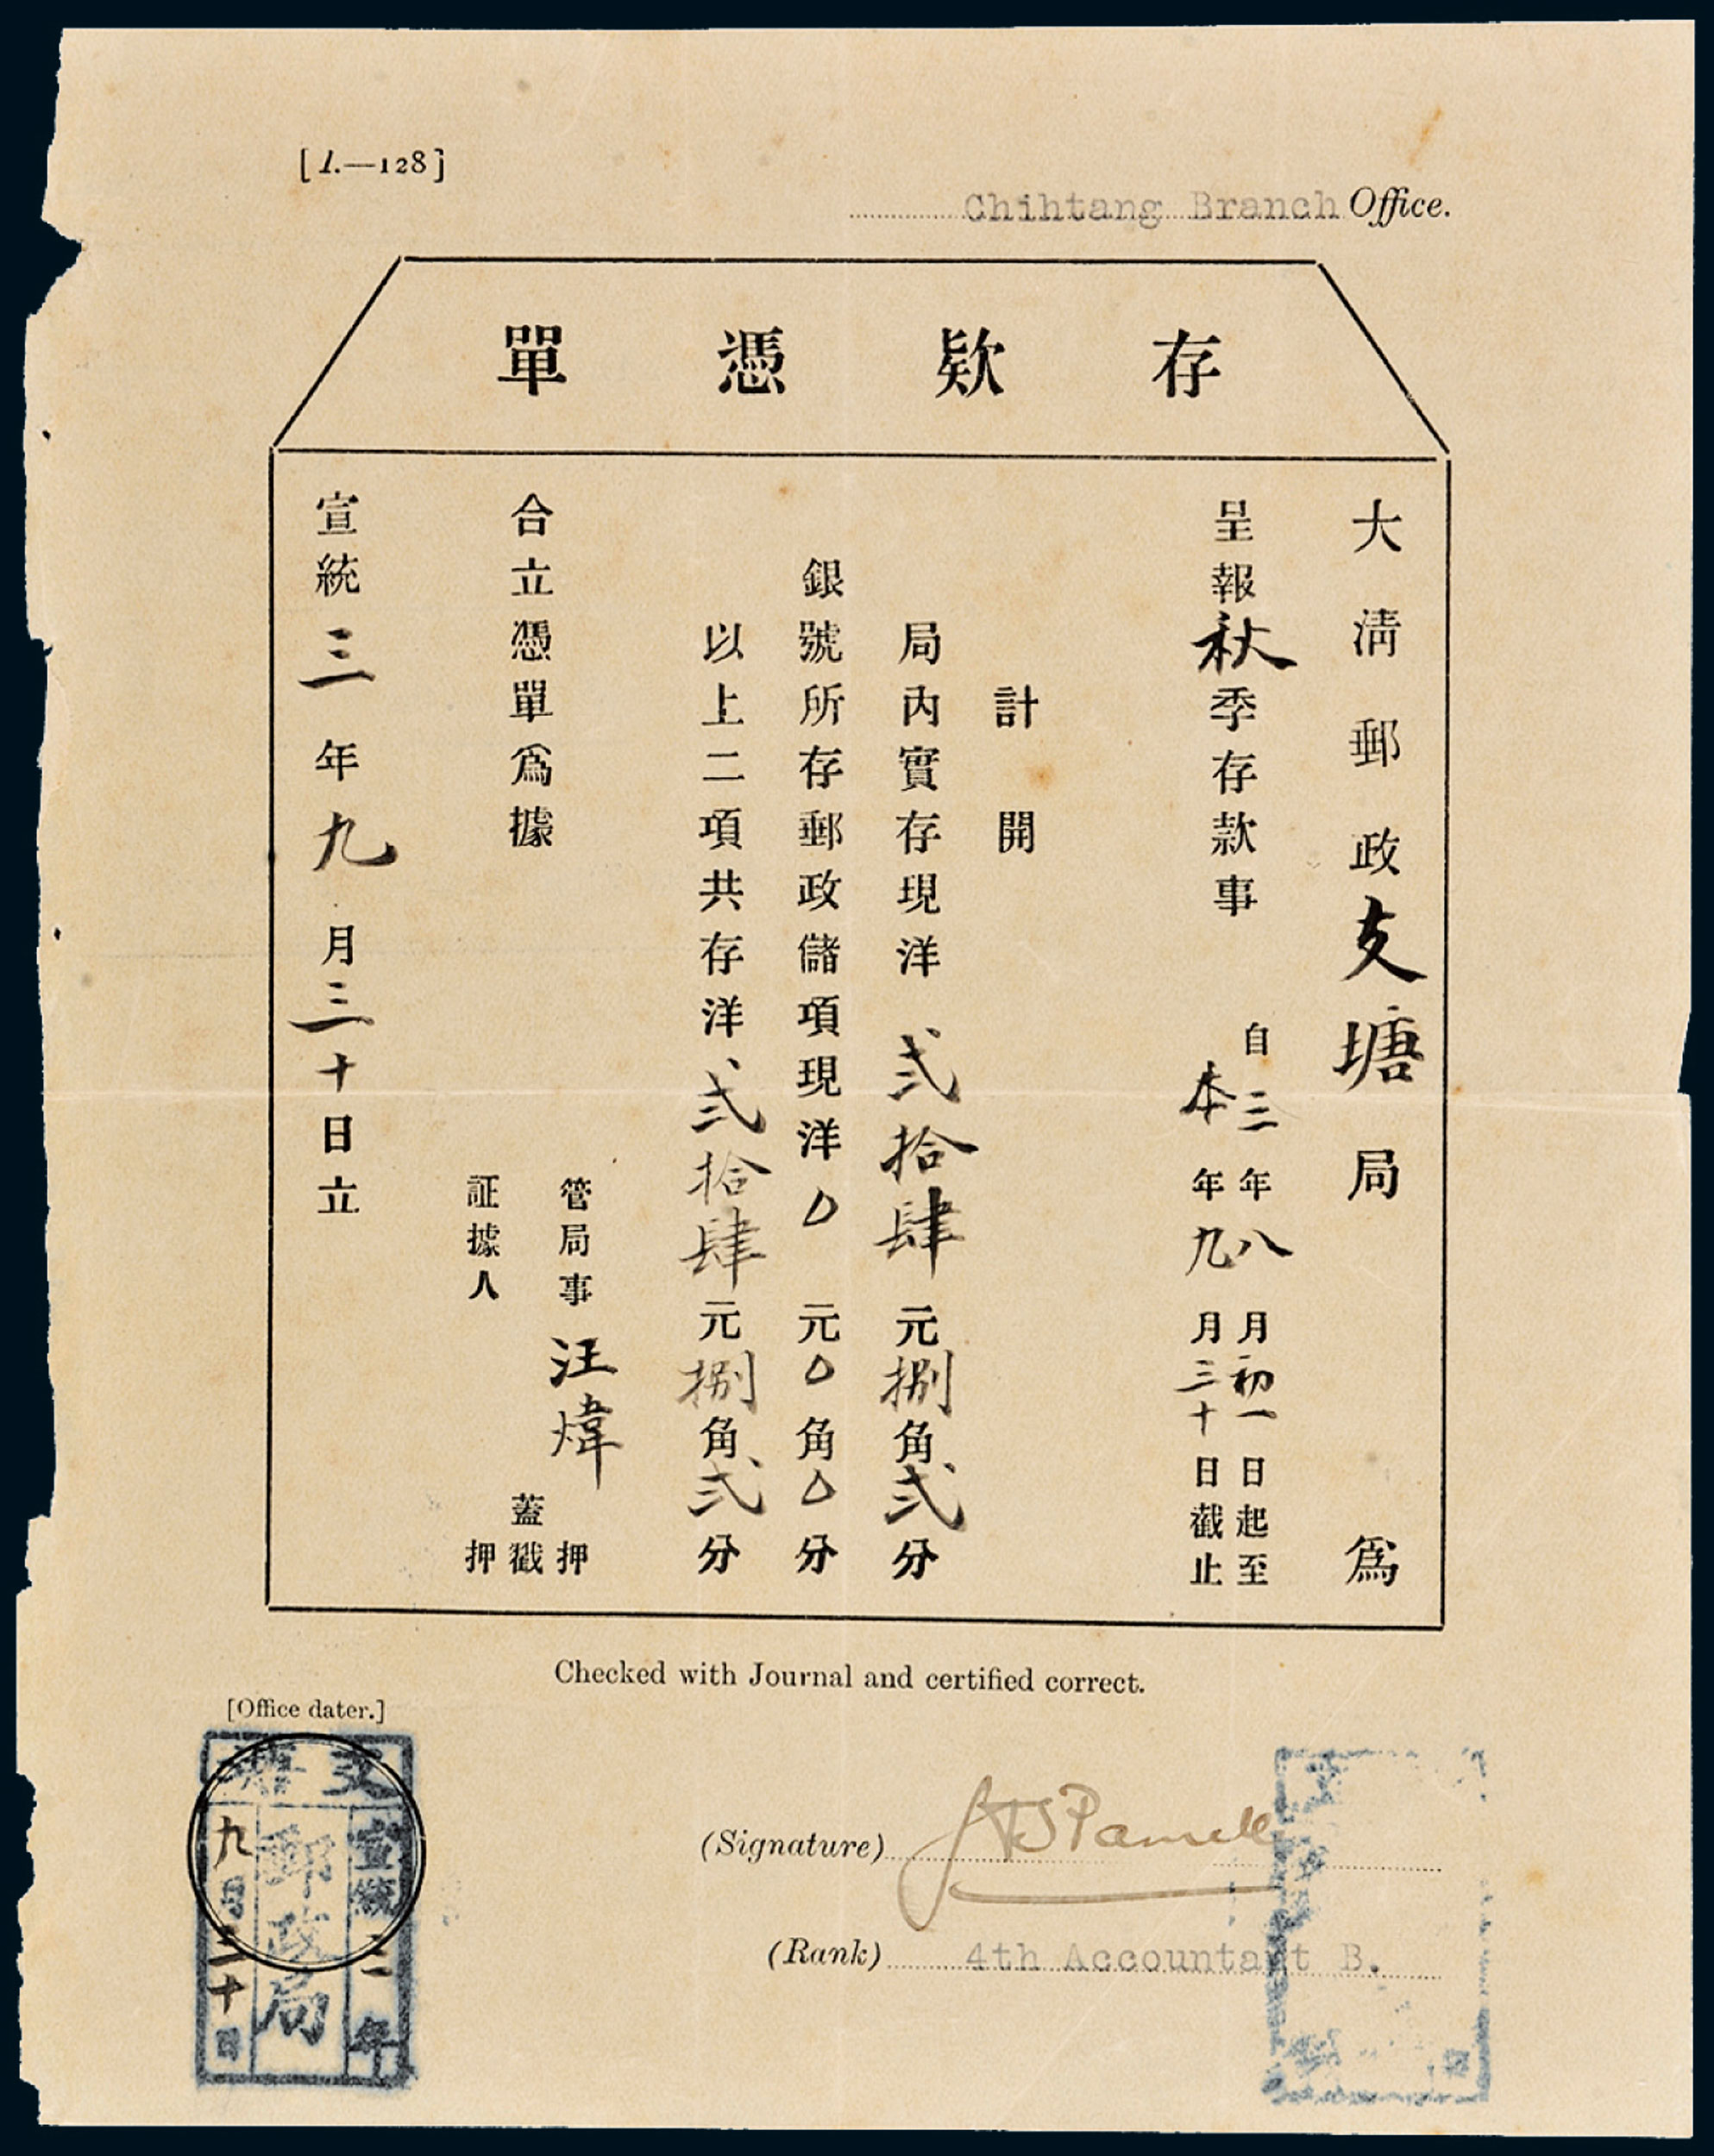 [1.—128]
Chihtang Branch Office.
存欵憑單
大清郵政支塘局爲
呈報秋季存款事
自三年八月初一日起至
本年九月三十日截止
計開
局内實存現洋弍拾肆元捌角弍分
銀號所存郵政儲項現洋0元0角0分
以上二項共存洋弍拾肆元捌角弍分
合立憑單爲據
管局事汪煒押
蓋戳
証據人押
宣統三年九月三十日立
Checked with Journal and certified correct.
[Office dater.]
支塘
宣統三年
郵政局
九月三十日
(Signature)
(Rank) 4th Accountant B.